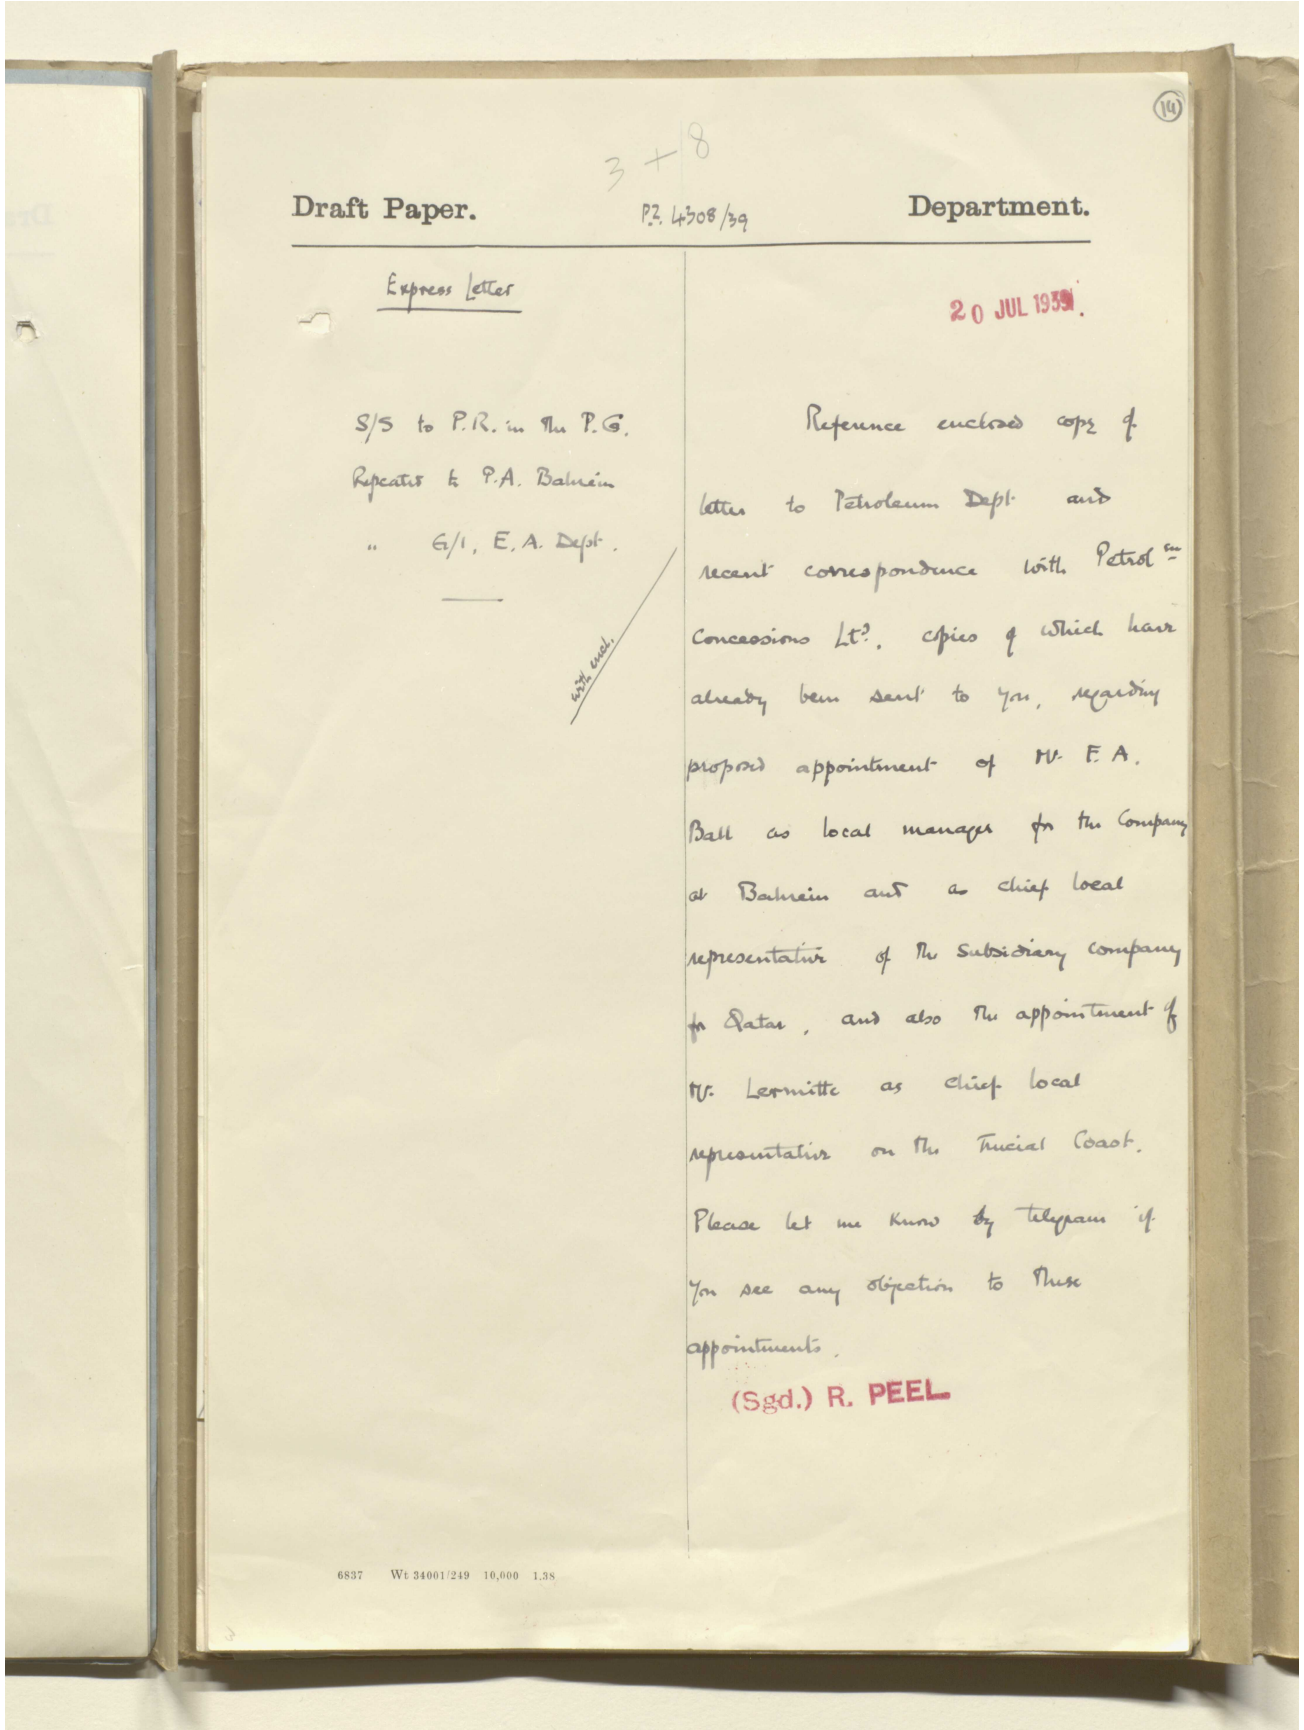 14
3 + 8
Draft Paper. P.Z. 4308/39 Department.
Express Letter
20 JUL 1939.
S/S to P.R. in the P.G.
Repeated to P.A. Bahrein
" G/I, E.A. Dept.
with encl.
Reference enclosed copy of
letter to Petroleum Dept and
recent correspondence with Petroleum
Concessions Ltd, copies of which have
already been sent to you, regarding
proposed appointment of Mr E.A.
Ball as local manager for the Company
at Bahrein and as chief local
representative of the subsidiary company
for Qatar, and also the appointment of
Mr. Lermitte as chief local
representative on the Trucial Coast.
Please let me know by telegram if
you see any objection to these
appointments.
(Sgd.) R. PEEL
6837 Wt 34001/249 10,000 1.38